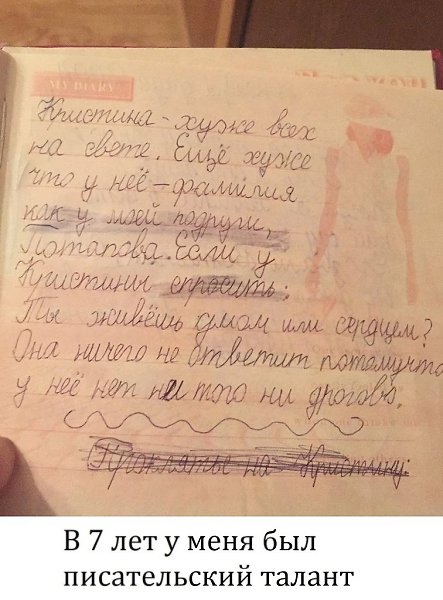 MY DIARY
Кристина - хуже всех
на свете. Ещё хуже
что у неё - фамилия
как у моей подруги,
Потапова. Если у
Кристины спросить:
Ты живёшь умом или сердцем?
Она ничего не ответит потамучто
у неё нет ни того ни дрогова.
Проклятье на Кристину.
В 7 лет у меня был
писательский талант